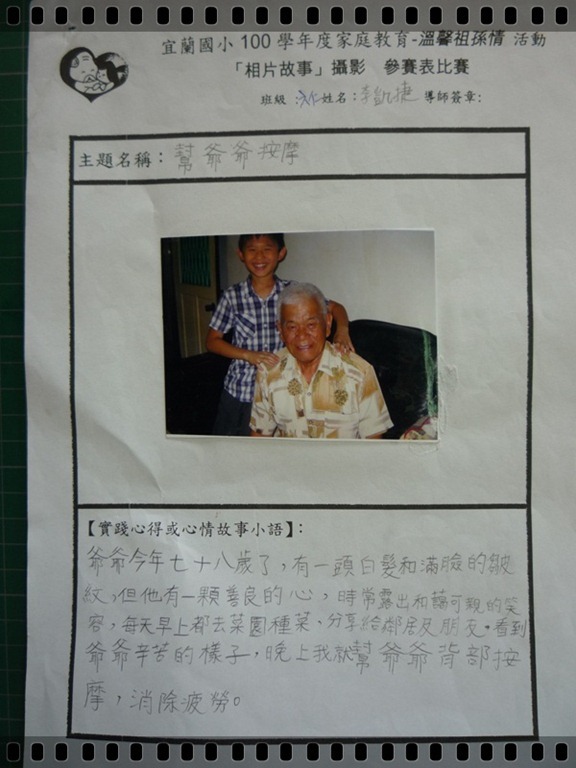 宜蘭國小 100 學年度家庭教育-溫馨祖孫情 活動
「相片故事」攝影 參賽表比賽
班級: 姓名: 李凱捷 導師簽章:
主題名稱: 幫爺爺按摩
【實踐心得或心情故事小語】:
爺爺今年七十八歲了,有一頭白髮和滿臉的皺
紋,但他有一顆善良的心,時常露出和藹可親的笑
容,每天早上都去菜園種菜、分享給鄰居及朋友。看到
爺爺辛苦的樣子,晚上我就幫爺爺背部按
摩,消除疲勞。